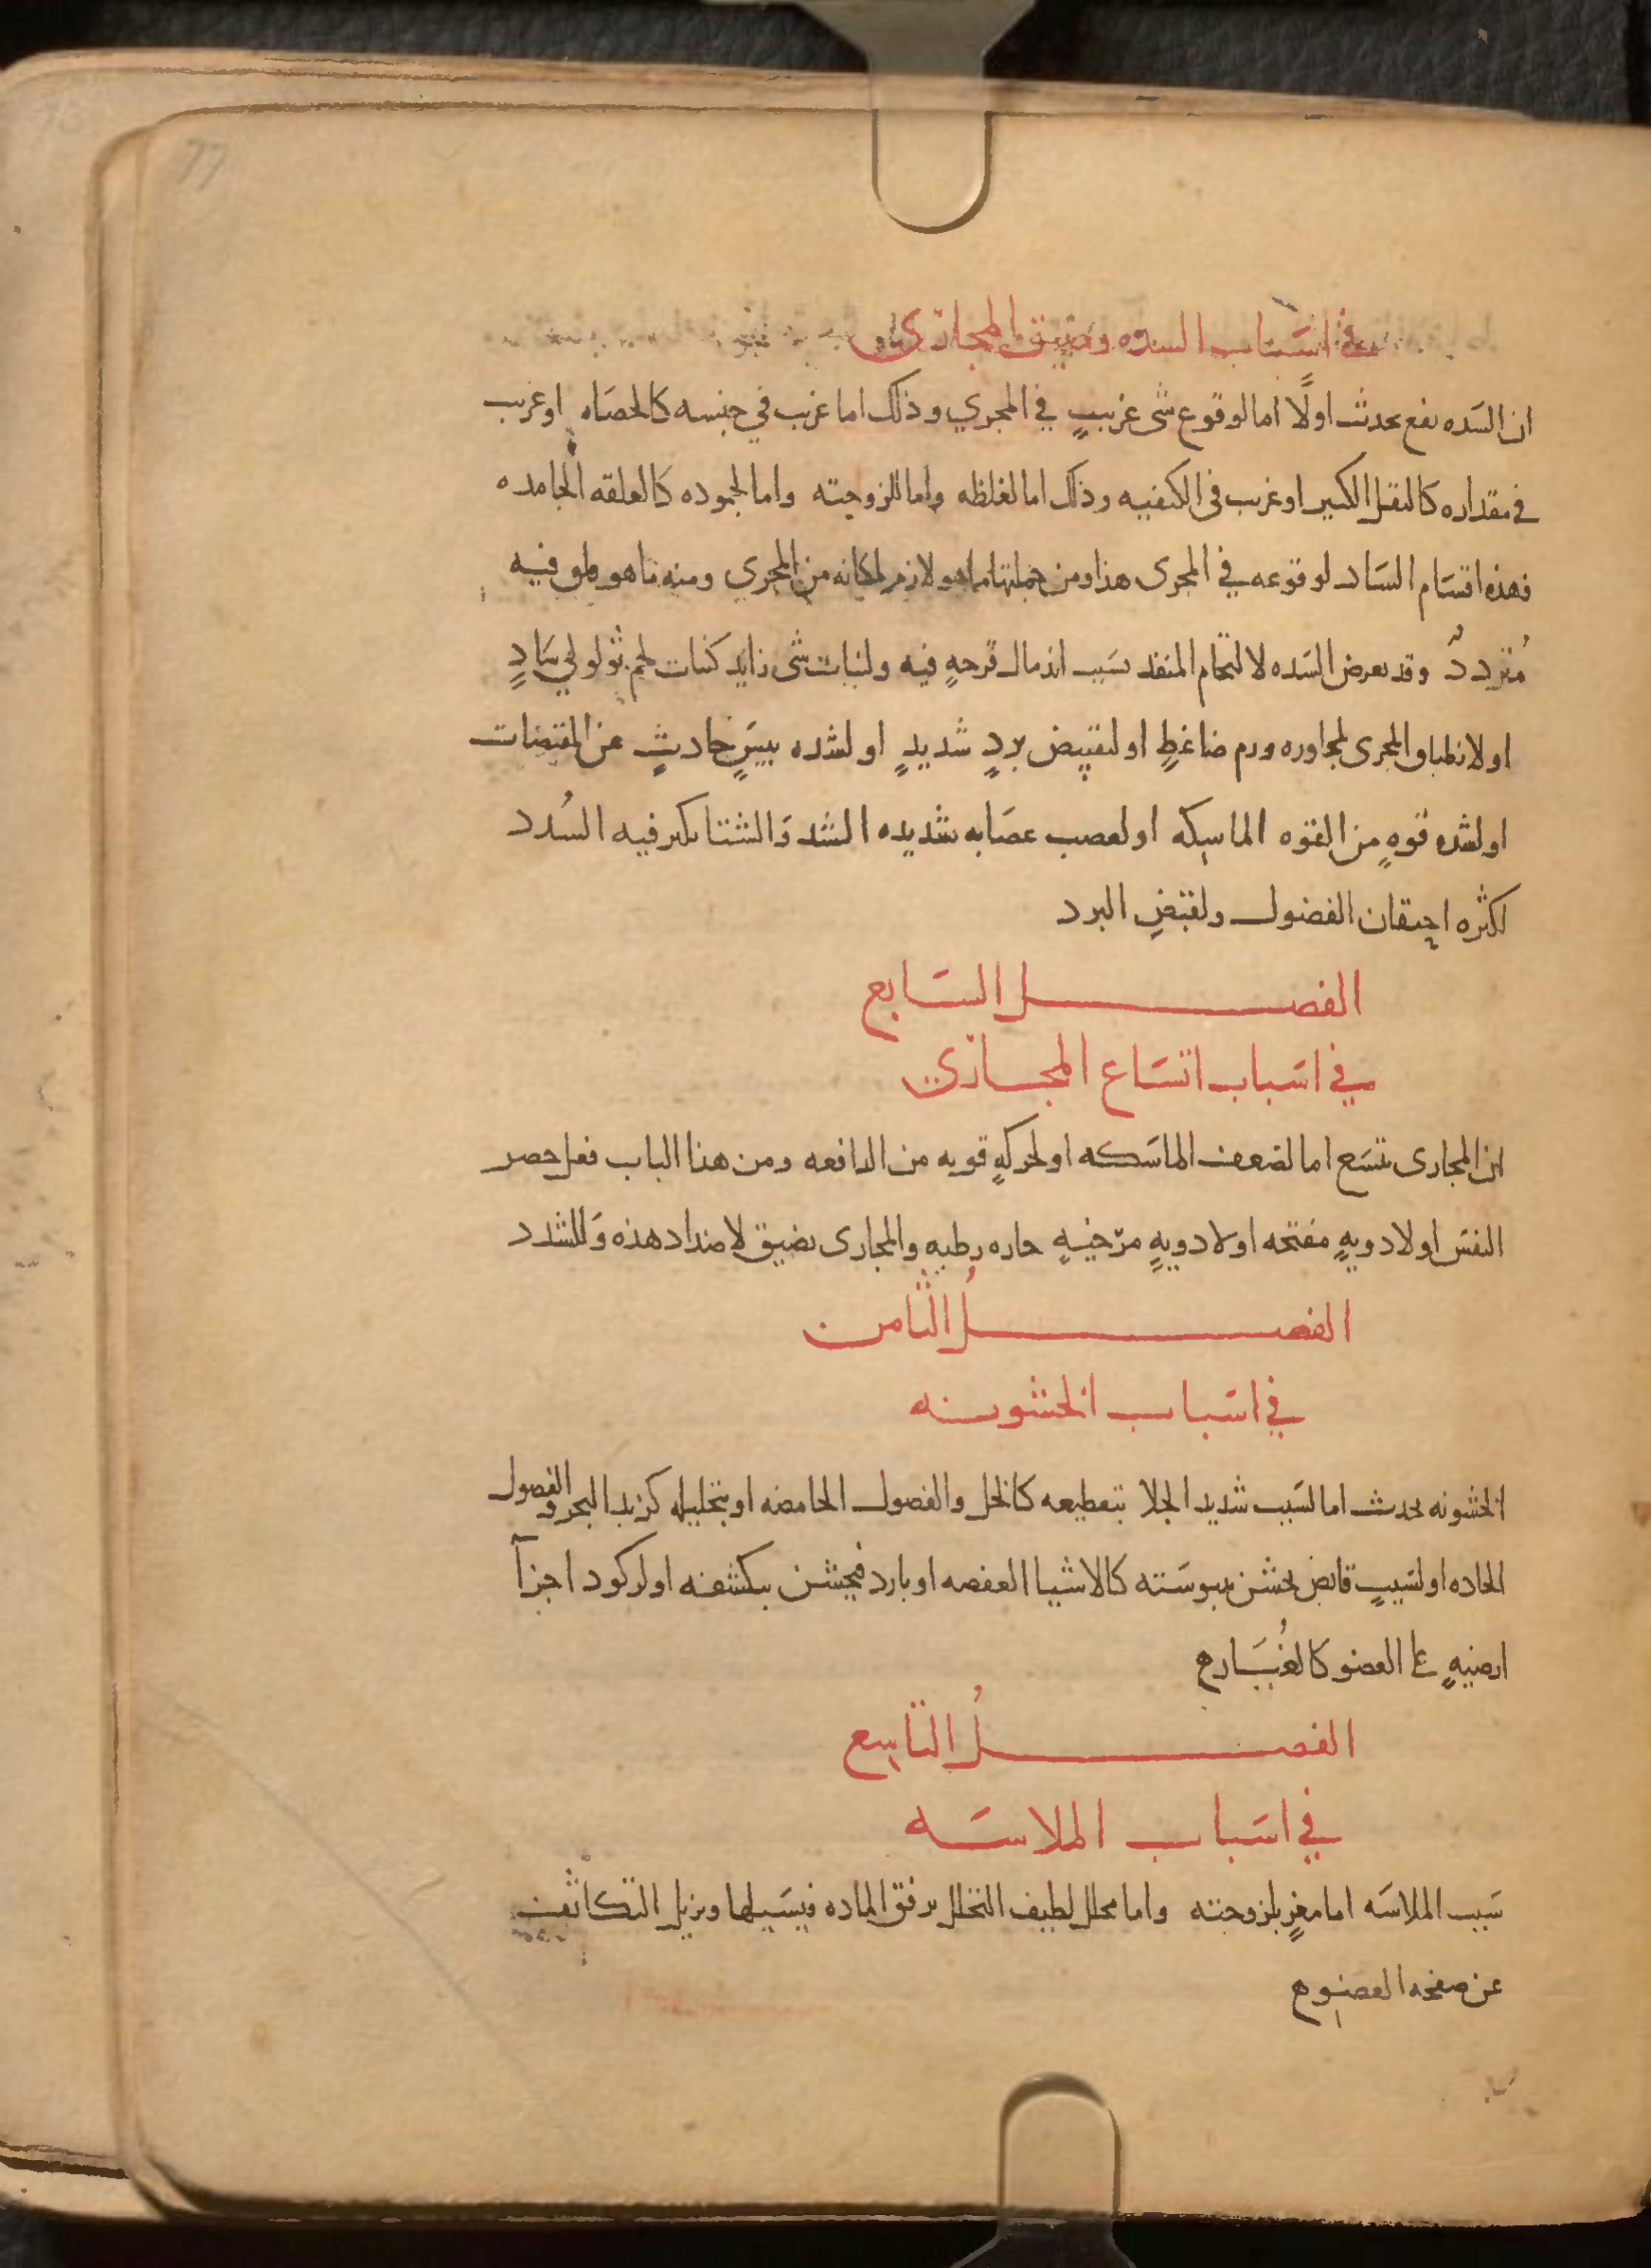 في اسباب السده وضيق المجاري
ان السده يقع يحدث اولًا اما لوقوع شى غريبٍ في المجري وذلك اما غريب في جنسه كالحصاه او غريب
في مقداره كالثقل الكبير او غريب في الكيفيه وذلك اما لغلظه واما للزوجته واما لجموده كالعلقه الجامده
فهذه اقسام الساد لوقوعه في المجرى هذا ومن جملتها ما هو لازم لمكانه من المجري ومنه ما هو قلق فيه
مُتردد وقد يعرض السده لالتحام المنفذ بسبب اندمال قرحهٍ فيه ولنبات شى زايد كنبات لحم ثولولي سادٍ
او لانطباق المجرى لمجاوره ورم ضاغطٍ او لتقبيض بردٍ شديدٍ او لشده يبسٍ حادثٍ عن المقبضات
او لشده قوهٍ من القوه الماسكه او لعصب عصابه شديده الشد والشتا يكثر فيه السُدد
لكثره احتقان الفضول ولقبض البرد
الفصل السابع
في اسباب اتساع المجاري
ان المجارى تتسع اما لضعف الماسكه او لحركهٍ قويه من الدافعه ومن هذا الباب فعل حصر
النفس او لادويهٍ مفتحه او لادويهٍ مرخيهٍ حاره رطبه والمجارى تضيق لاضداد هذه وللشدد
الفصلُ الثامن
في اسباب الخشونه
الخشونه تحدث اما لسبب شديد الجلا بتقطيعه كالخل والفضول الحامضه او بتحليله كزبد البحر والفضول
الحاده او لسببٍ قابض يخشن بيبوسته كالاشيا العفصه او بارد فيخشن بتكثيفه او لركود اجزآ
ارضيهٍ على العضو كالغُبار ه
الفصلُ التاسع
في اسباب الملاسه
سبب الملاسه اما مغرٍ بلزوجته واما محلل لطيف التحلل يرقق الماده فيسيلها ويزيل التكاثف
عن صفحه العضو ه